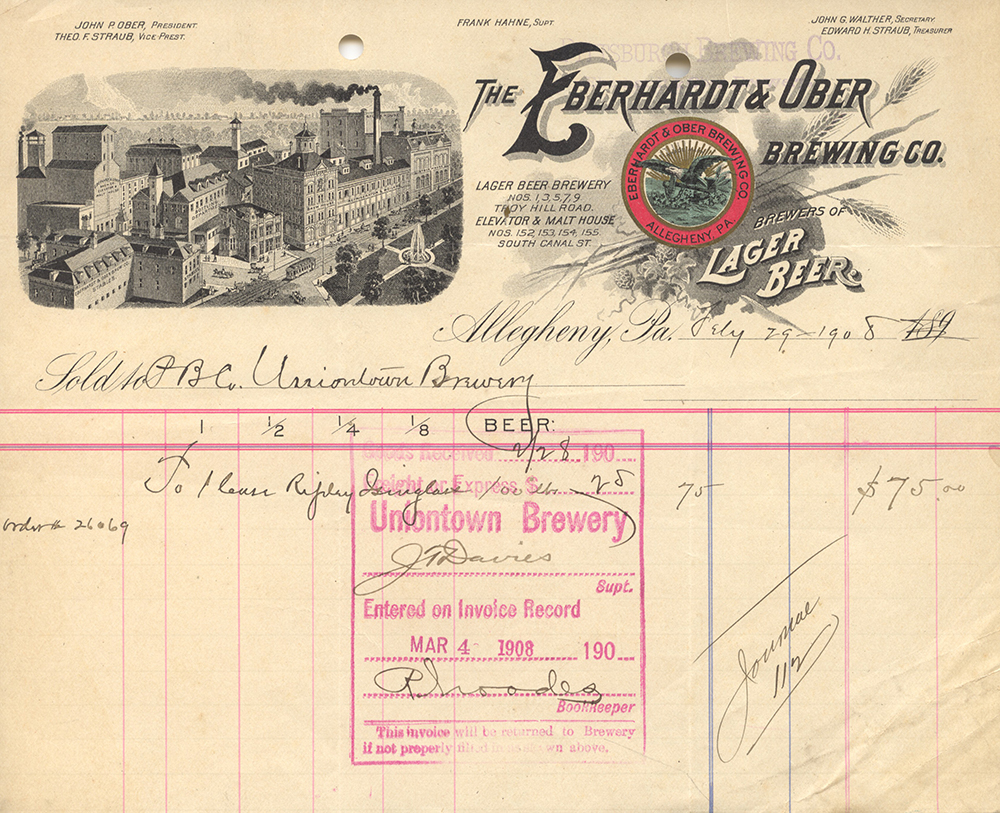 JOHN P. OBER, PRESIDENT.
THEO. F. STRAUB, VICE-PREST.
FRANK HAHNE, SUPT.
JOHN G. WALTHER, SECRETARY.
EDWARD H. STRAUB, TREASURER
BREWING CO.
THE EBERHARDT & OBER
BREWING CO.
EBERHARDT & OBER BREWING CO.
ALLEGHENY, PA.
LAGER BEER BREWERY
NOS. 1, 3, 5, 7, 9
TROY HILL ROAD.
ELEVATOR & MALT HOUSE
NOS. 152, 153, 154, 155.
SOUTH CANAL ST.
BREWERS OF
LAGER
BEER.
Allegheny, Pa. 29 - 1908 189
Sold to P B Co. Uniontown Brewery
1 1/2 1/4 1/8 BEER:
Goods Received 2/28 190
To 1 Case Ripley Isinglass 100 lbs. 75 $75.00
Freight or Express $
Order # 26069
Uniontown Brewery
J T Davies
Supt.
Entered on Invoice Record
MAR 4 1908 190
R Rhoades
Bookkeeper
This invoice will be returned to Brewery
if not properly filled in as shown above.
Journal
112